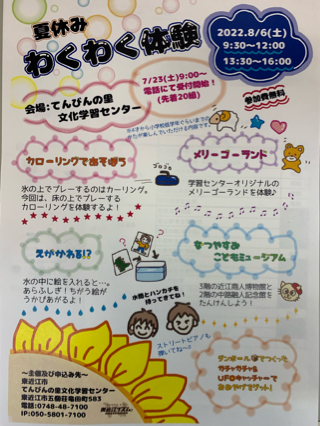 夏休み
わくわく体験
2022.8/6(土)
9:30～12:00
13:30～16:00
7/23(土)9:00～
電話にて受付開始！
(先着20組)
会場：てんびんの里
文化学習センター
参加費無料
※4才から小学校低学年ぐらいまでの
カローリングであそぼう
メリーゴーランド
氷の上でプレーするのはカーリング。
今回は、床の上でプレーする
カローリングを体験するよ！
学習センターオリジナルの
メリーゴーランドを体験♪
えがかわる!?
なつやすみ
こどもミュージアム
水の中に絵を入れると…
あらふしぎ！ちがう絵が
うかびあがるよ！
水筒とハンカチを
持ってきてね！
3階の近江商人博物館と
2階の中路融人記念館を
たんけんしよう！
ストリートピアノも
弾いてね～♪
ダンボールでつくった
ガチャガチャ&
UFOキャッチャーで
おみやげゲット！
～主催及び申込み先～
東近江市
てんびんの里文化学習センター
東近江市五個荘竜田町583
電話:0748-48-7100
IP:050-5801-7100